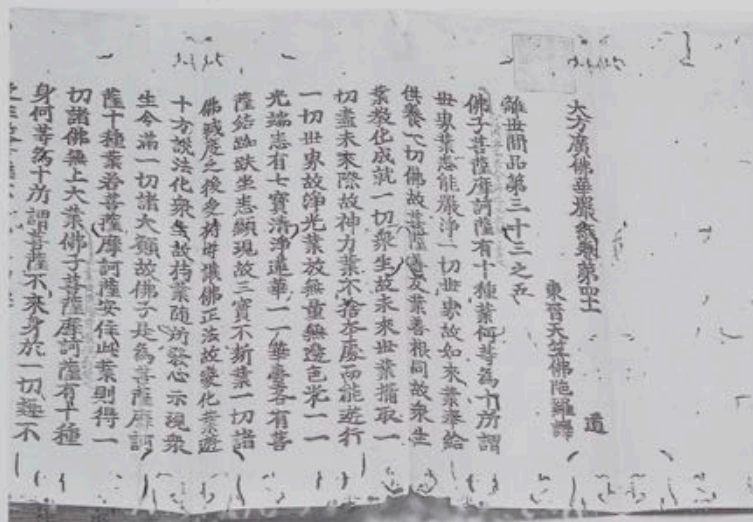 大方廣佛華嚴經卷第四十
東晉天竺佛陁羅譯 道
離世間品第三十三之五
佛子菩薩摩訶薩有十種業何等為十所謂
世界業悉能嚴淨一切世界故如來業奉給
供養一切佛故菩薩友業善根同故衆生
業教化成就一切衆生故未來世業攝取一
切盡未來際故神力業不捨本處而能遊行
一切世界故淨光業放無量無邊色光一一
光端悉有七寶清淨蓮華一一華臺各有菩
薩結跏趺坐悉顯現故三寶不斷業一切諸
佛滅度之後受持守護佛正法故變化業遊
十方說法化衆生故持業随所發心示現衆
生令滿一切諸大願故佛子是為菩薩摩訶
薩十種業若菩薩摩訶薩安住此業則得一
切諸佛無上大業佛子菩薩摩訶薩有十種
身何等為十所謂菩薩不來身於一切趣不